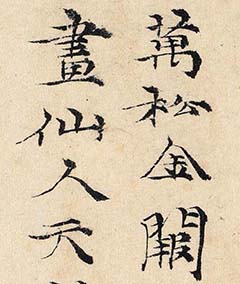 萬松金闕
畫仙人天